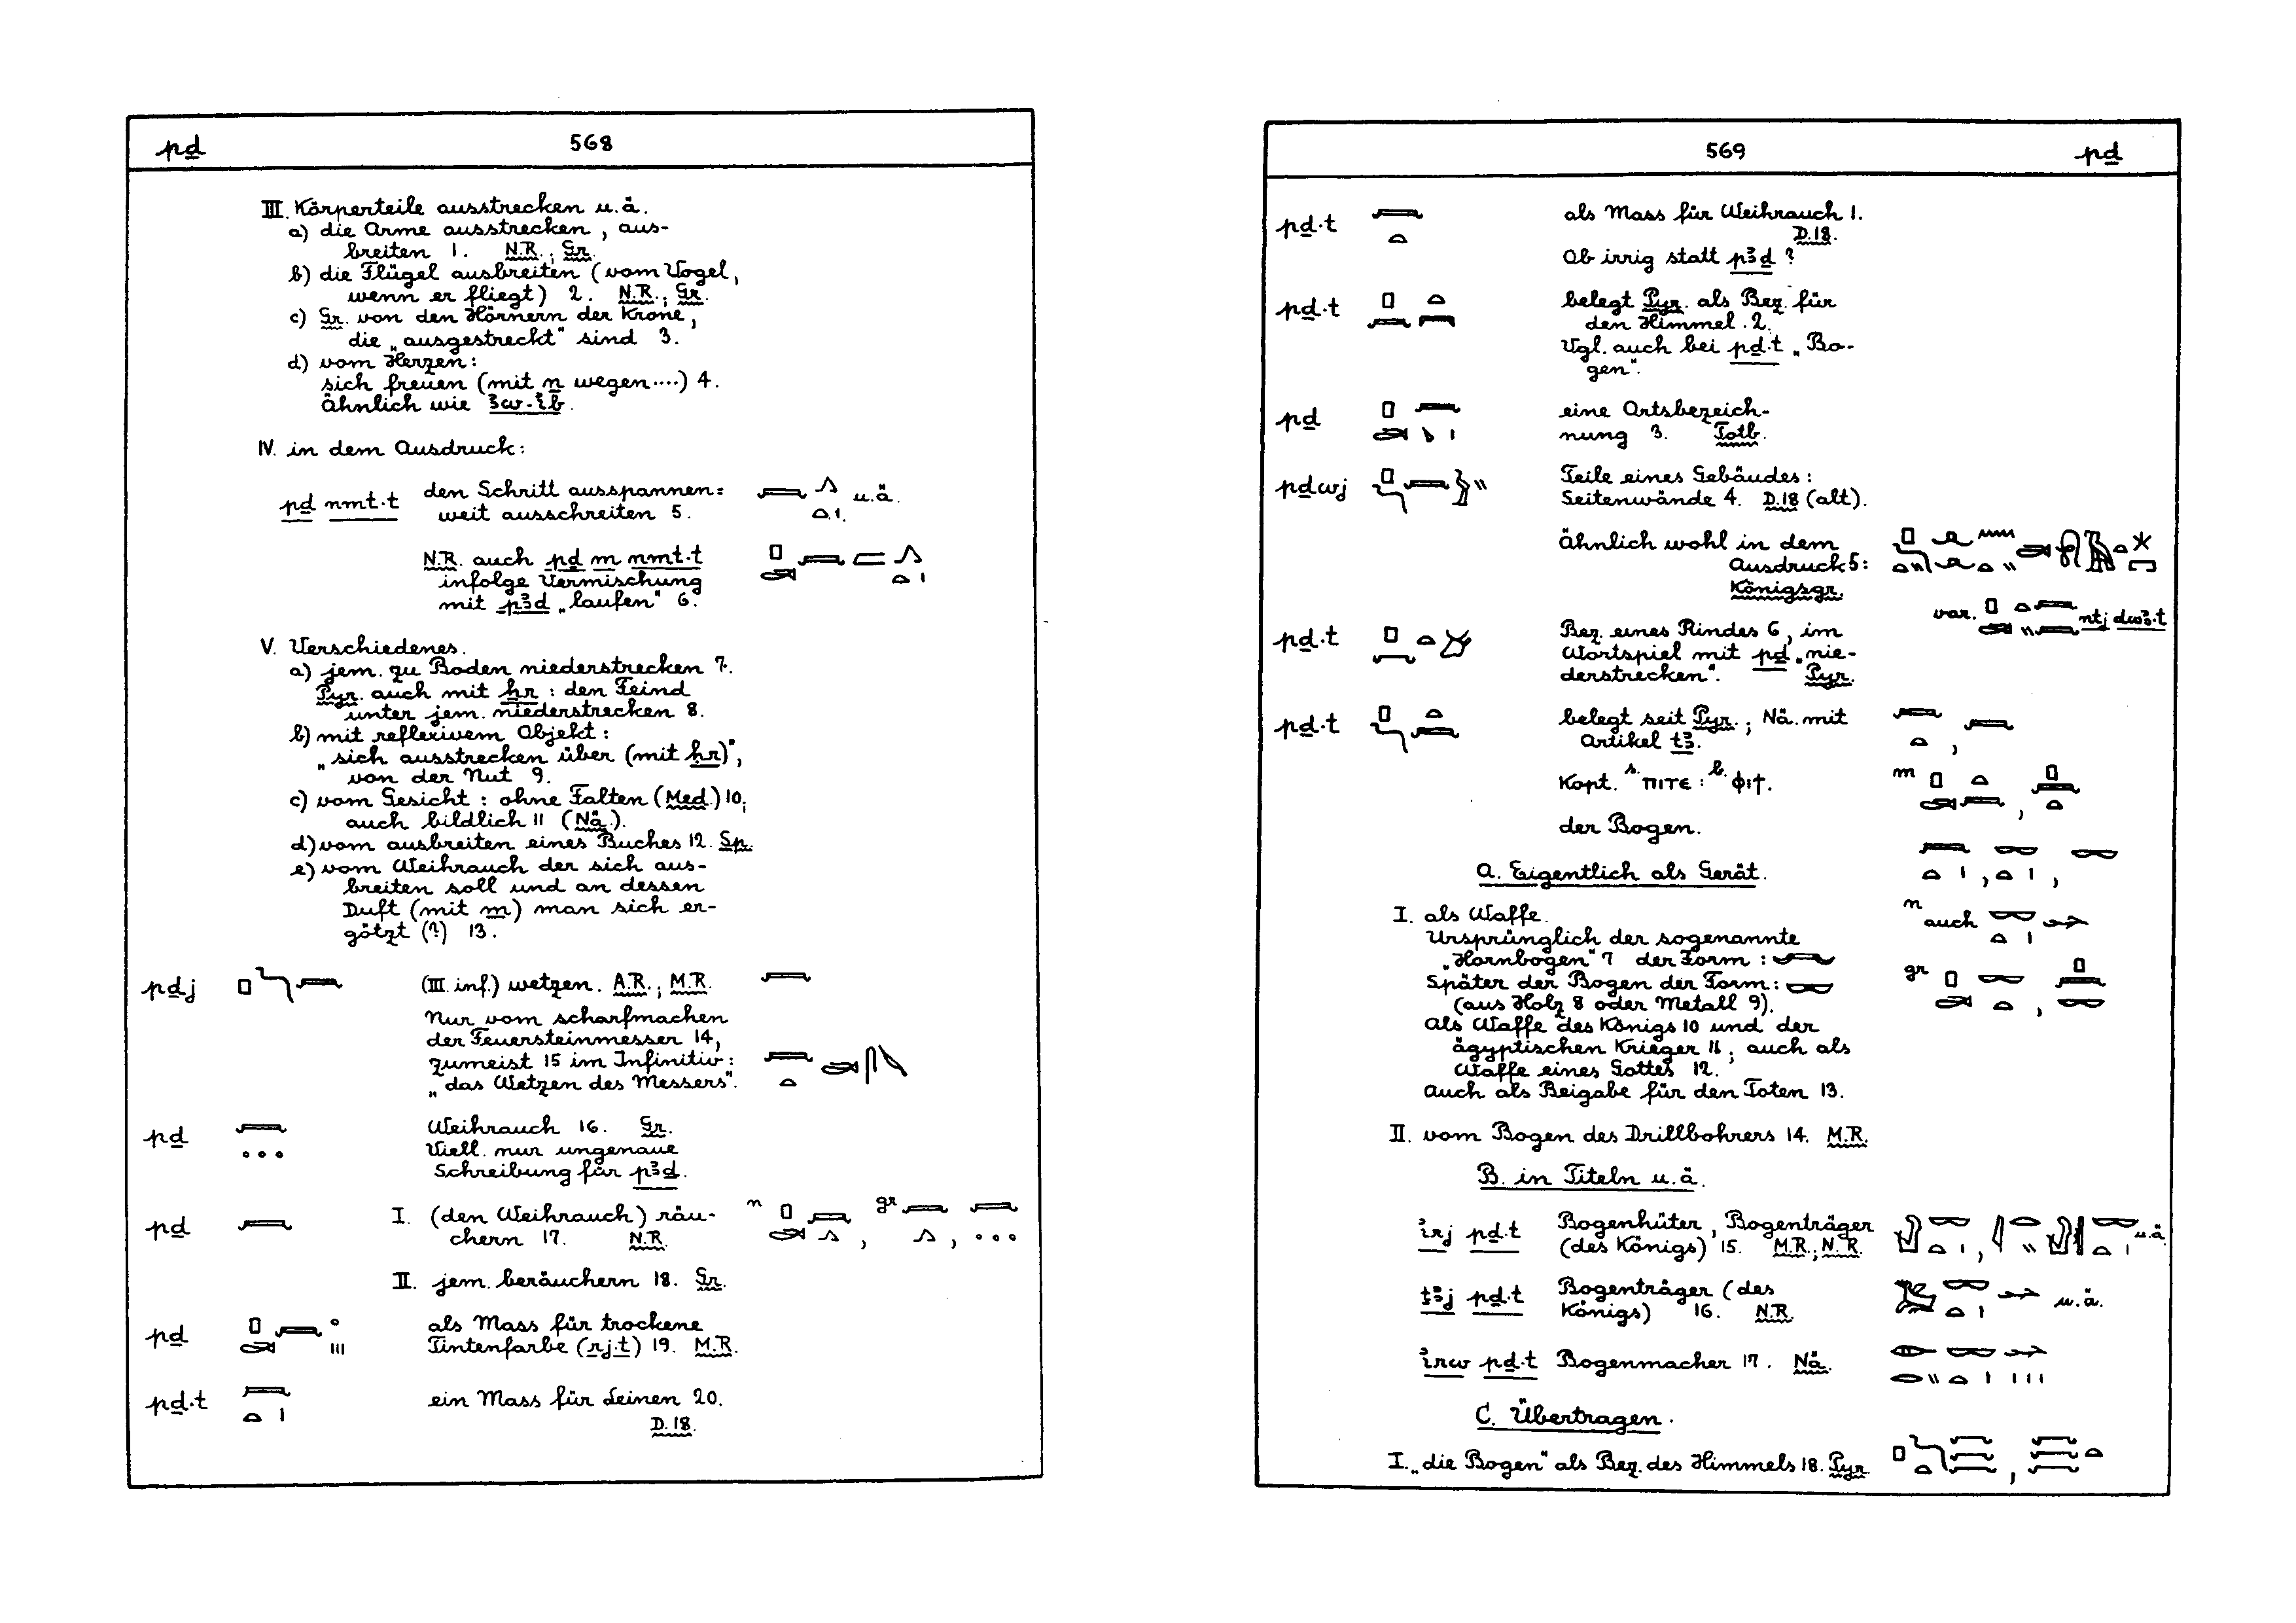 pḏ 568
III. Körperteile ausstrecken u.ä.
a) die Arme ausstrecken, aus-
breiten 1. N.R.; Gr.
b) die Flügel ausbreiten (vom Vogel,
wenn er fliegt) 2. N.R.; Gr.
c) Gr. von den Hörnern der Krone,
die „ausgestreckt" sind 3.
d) vom Herzen:
sich freuen (mit n wegen....) 4.
Ähnlich wie ꜣw-ib.
IV. in dem Ausdruck:
pḏ nmt.t den Schritt ausspannen = u.ä.
weit ausschreiten 5.
N.R. auch pḏ m nmt.t
infolge Vermischung
mit pꜣḏ „laufen" 6.
V. Verschiedenes.
a) jem. zu Boden niederstrecken 7.
Pyr. auch mit ẖr : den Feind
unter jem. niederstrecken 8.
b) mit reflexivem Objekt:
„sich ausstrecken über (mit ḥr)",
von der Nut 9.
c) vom Gesicht: ohne Falten (Med.) 10;
auch bildlich 11 (Nä.).
d) vom ausbreiten eines Buches 12. Sp.
e) vom Weihrauch der sich aus-
breiten soll und an dessen
Duft (mit m) man sich er-
götzt (?) 13.
pḏj (III. inf.) wetzen. A.R.; M.R.
Nur vom scharfmachen
der Feuersteinmesser 14,
zumeist 15 im Infinitiv:
„das Wetzen des Messers".
pḏ Weihrauch 16. Gr.
Viell. nur ungenaue
Schreibung für pꜣḏ.
pḏ I. (den Weihrauch) räu- n gr
chern 17. N.R.
II. jem. beräuchern 18. Gr.
pḏ als Mass für trockene
Tintenfarbe (rj.t) 19. M.R.
pḏ.t ein Mass für Leinen 20.
D.18.
569 pḏ
pḏ.t als Mass für Weihrauch 1.
D.18.
Ob irrig statt pꜣḏ ?
pḏ.t belegt Pyr. als Bez. für
den Himmel. 2.
Vgl. auch bei pḏ.t „Bo-
gen".
pḏ eine Ortsbezeich-
nung 3. Totb.
pḏwj Teile eines Gebäudes:
Seitenwände 4. D.18 (alt).
Ähnlich wohl in dem
Ausdruck 5:
Königsgr.
var. ntj dwꜣ.t
pḏ.t Bez. eines Rindes 6, im
Wortspiel mit pḏ „nie-
derstrecken". Pyr.
pḏ.t belegt seit Pyr.; Nä. mit
Artikel tꜣ.
Kopt. s. ⲡⲓⲧⲉ : b. ⲫⲓϯ. m
der Bogen.
A. Eigentlich als Gerät.
I. als Waffe. n auch
Ursprünglich der sogenannte
„Hornbogen" 7 der Form:
Später der Bogen der Form: gr
(aus Holz 8 oder Metall 9).
Als Waffe des Königs 10 und der
ägyptischen Krieger 11; auch als
Waffe eines Gottes 12.
Auch als Beigabe für den Toten 13.
II. vom Bogen des Drillbohrers 14. M.R.
B. in Titeln u.ä.
irj pḏ.t Bogenhüter, Bogenträger u.ä.
(des Königs) 15. M.R.; N.R.
ṯꜣj pḏ.t Bogenträger (des
Königs) 16. N.R. u.ä.
irw pḏ.t Bogenmacher 17. Nä.
C. Übertragen.
I. „die Bogen" als Bez. des Himmels 18. Pyr.